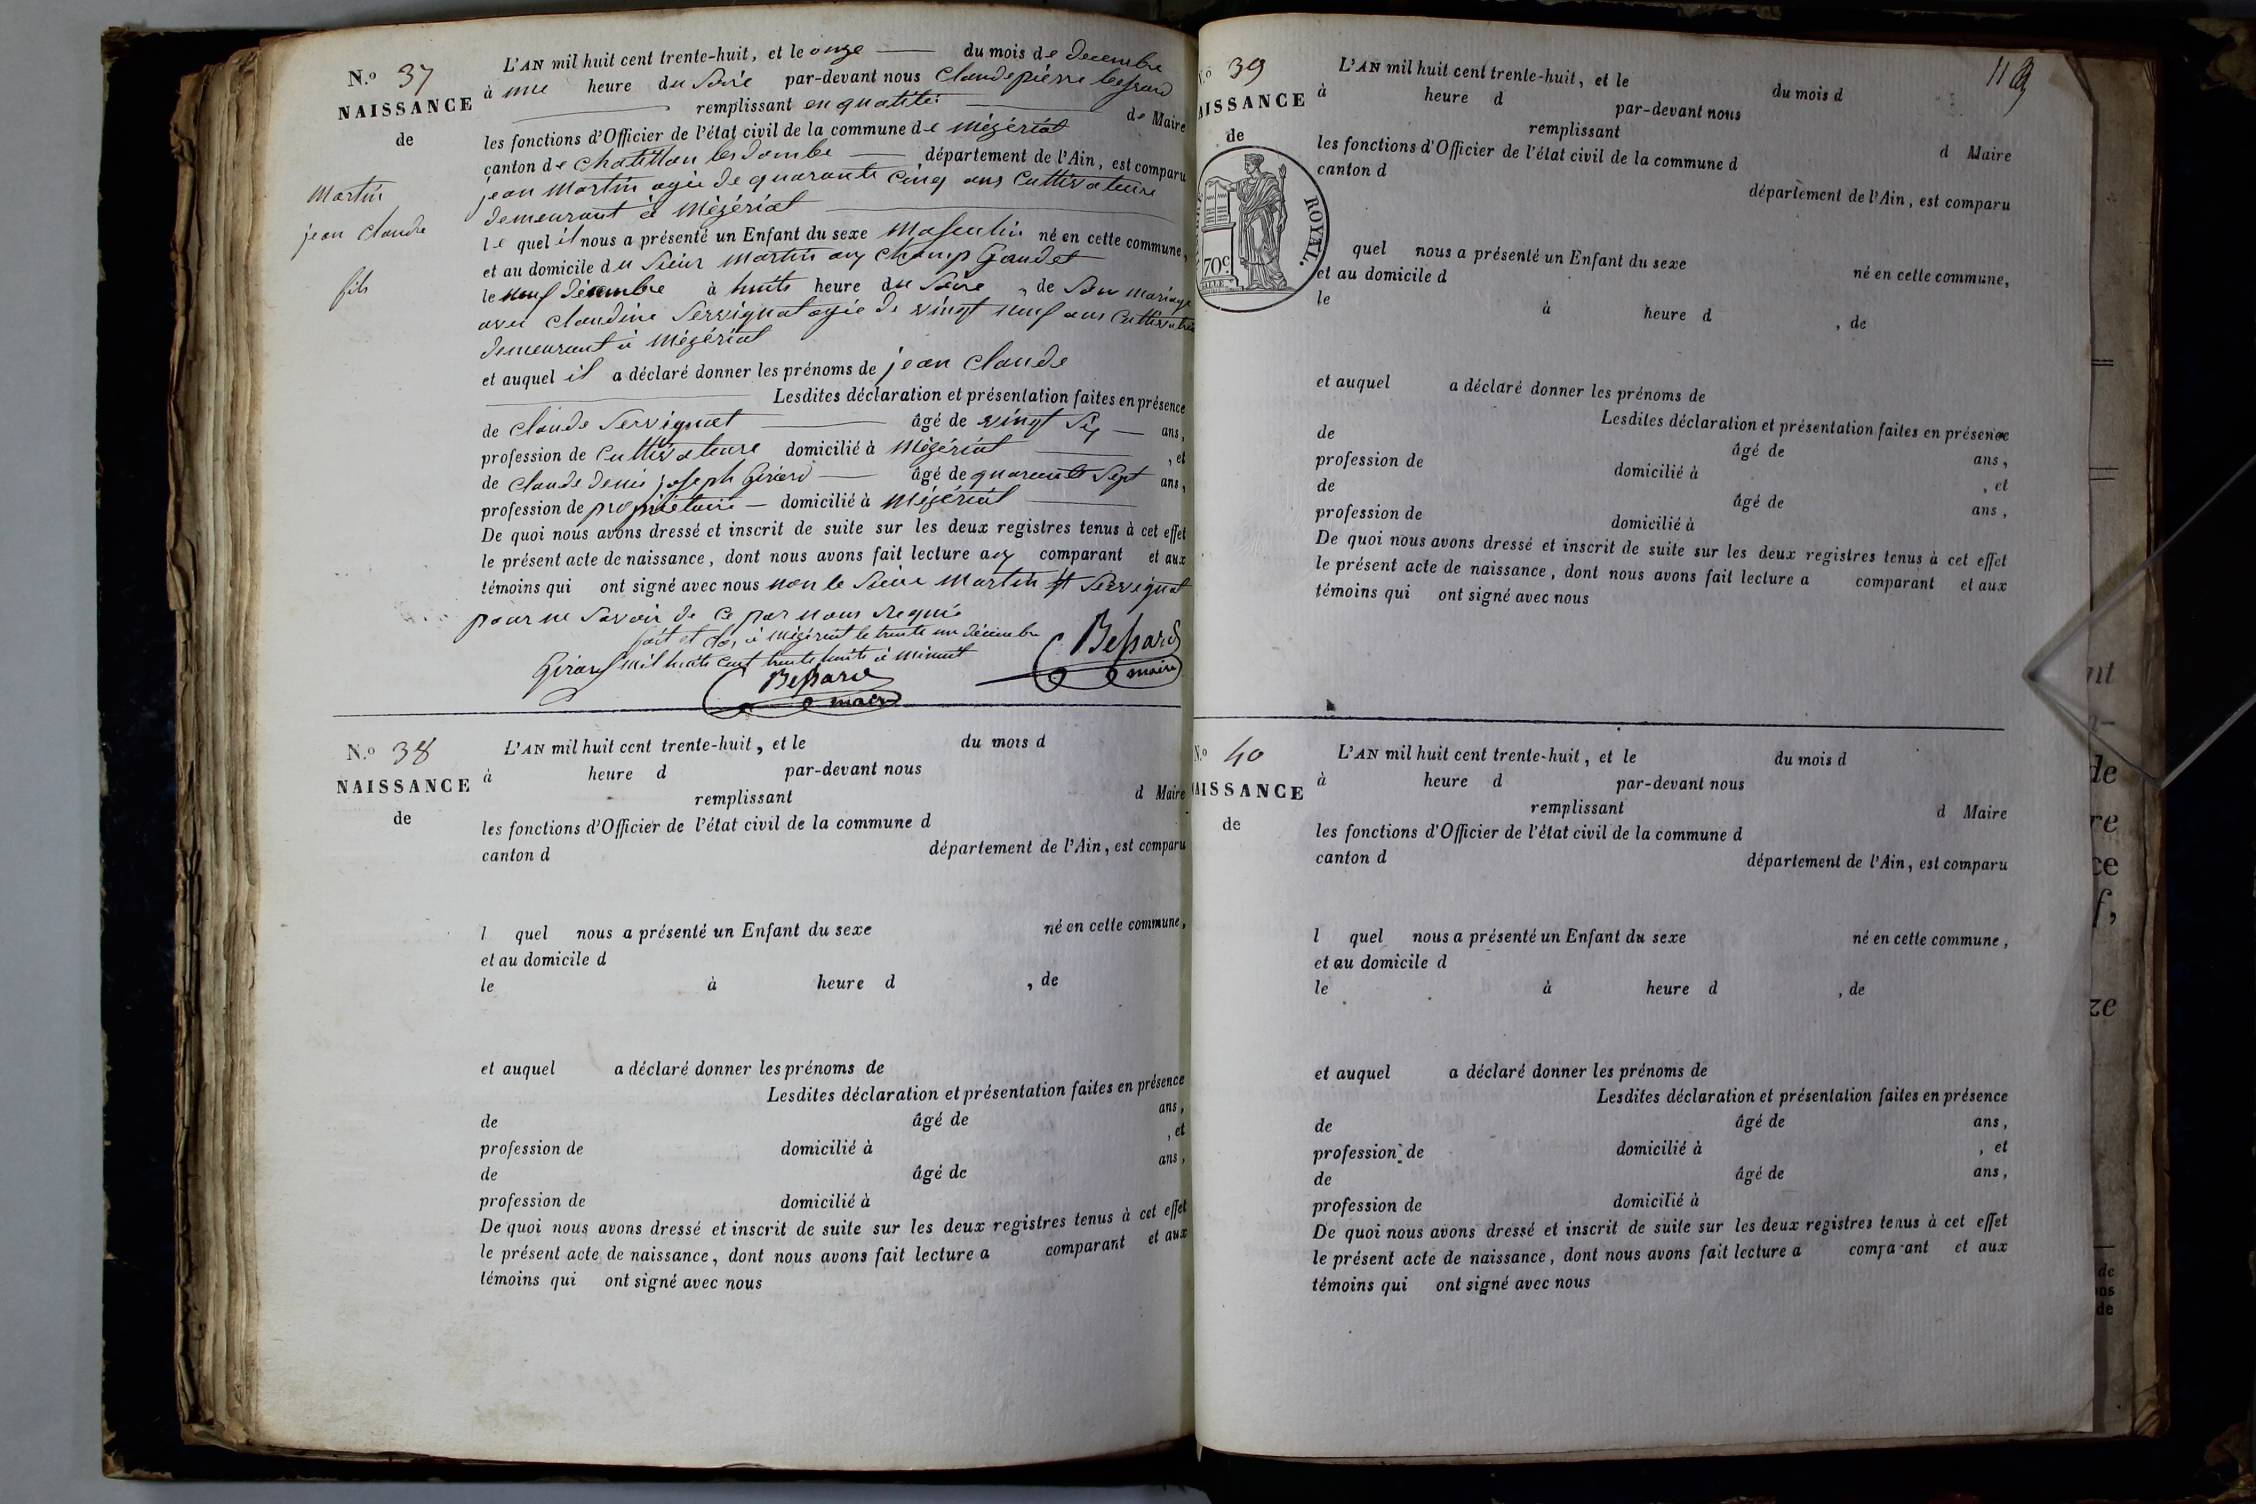 N.º 37
NAISSANCE
de
Martin
jean Claude
fils
L'AN mil huit cent trente-huit, et le onze du mois de decembre
à une heure du Soire par-devant nous Claude pierre bessard
remplissant en quatité de Maire
les fonctions d'Officier de l'état civil de la commune de Mézériat
canton de Chatillon les dombe, département de l'Ain, est comparu
jean Martin agée de quarante Cinq ans Cultivateure
demeurant à Mézériat
le quel il nous a présenté un Enfant du sexe Masculin né en cette commune,
et au domicile du Sieur Martin aux Champ Gaudet
le neuf décembre à huite heure du Soire, de Son mariage
avec Claudine Servignat agée de vingt neuf ans Cultivatrice
demeurant à Mézériat
et auquel il a déclaré donner les prénoms de jean Claude
Lesdites déclaration et présentation faites en présence
de Claude Servignat âgé de vingt Six ans,
profession de Cultivateure domicilié à Mézériat, et
de Claude denis joseph Girard âgé de quarante Sept ans,
profession de propriétaire domicilié à Mézériat
De quoi nous avons dressé et inscrit de suite sur les deux registres tenus à cet effet
le présent acte de naissance, dont nous avons fait lecture aux comparant et aux
témoins qui ont signé avec nous non le Sieur Martin et Servignat
pour ne Savoir de Ce par nous Requis
fait et clos à Mézériat le trente un décembre
Girard mil huite cent trente huite à minuit
Bessard
maire
Bessard
maire
N.º 38
NAISSANCE
de
L'AN mil huit cent trente-huit, et le du mois d
à heure d par-devant nous
remplissant d Maire
les fonctions d'Officier de l'état civil de la commune d
canton d département de l'Ain, est comparu
l quel nous a présenté un Enfant du sexe né en cette commune,
et au domicile d
le à heure d , de
et auquel a déclaré donner les prénoms de
Lesdites déclaration et présentation faites en présence
de âgé de ans,
profession de domicilié à , et
de âgé de ans,
profession de domicilié à
De quoi nous avons dressé et inscrit de suite sur les deux registres tenus à cet effet
le présent acte de naissance, dont nous avons fait lecture a comparant et aux
témoins qui ont signé avec nous
119
N.º 39
NAISSANCE
de
ROYAL.
70c.
L'AN mil huit cent trente-huit, et le du mois d
à heure d par-devant nous
remplissant d Maire
les fonctions d'Officier de l'état civil de la commune d
canton d département de l'Ain, est comparu
quel nous a présenté un Enfant du sexe né en cette commune,
et au domicile d
le à heure d , de
et auquel a déclaré donner les prénoms de
Lesdites déclaration et présentation faites en présence
de âgé de ans,
profession de domicilié à , et
de âgé de ans,
profession de domicilié à
De quoi nous avons dressé et inscrit de suite sur les deux registres tenus à cet effet
le présent acte de naissance, dont nous avons fait lecture a comparant et aux
témoins qui ont signé avec nous
N.º 40
NAISSANCE
de
L'AN mil huit cent trente-huit, et le du mois d
à heure d par-devant nous
remplissant d Maire
les fonctions d'Officier de l'état civil de la commune d
canton d département de l'Ain, est comparu
l quel nous a présenté un Enfant du sexe né en cette commune,
et au domicile d
le à heure d , de
et auquel a déclaré donner les prénoms de
Lesdites déclaration et présentation faites en présence
de âgé de ans,
profession de domicilié à , et
de âgé de ans,
profession de domicilié à
De quoi nous avons dressé et inscrit de suite sur les deux registres tenus à cet effet
le présent acte de naissance, dont nous avons fait lecture a comparant et aux
témoins qui ont signé avec nous